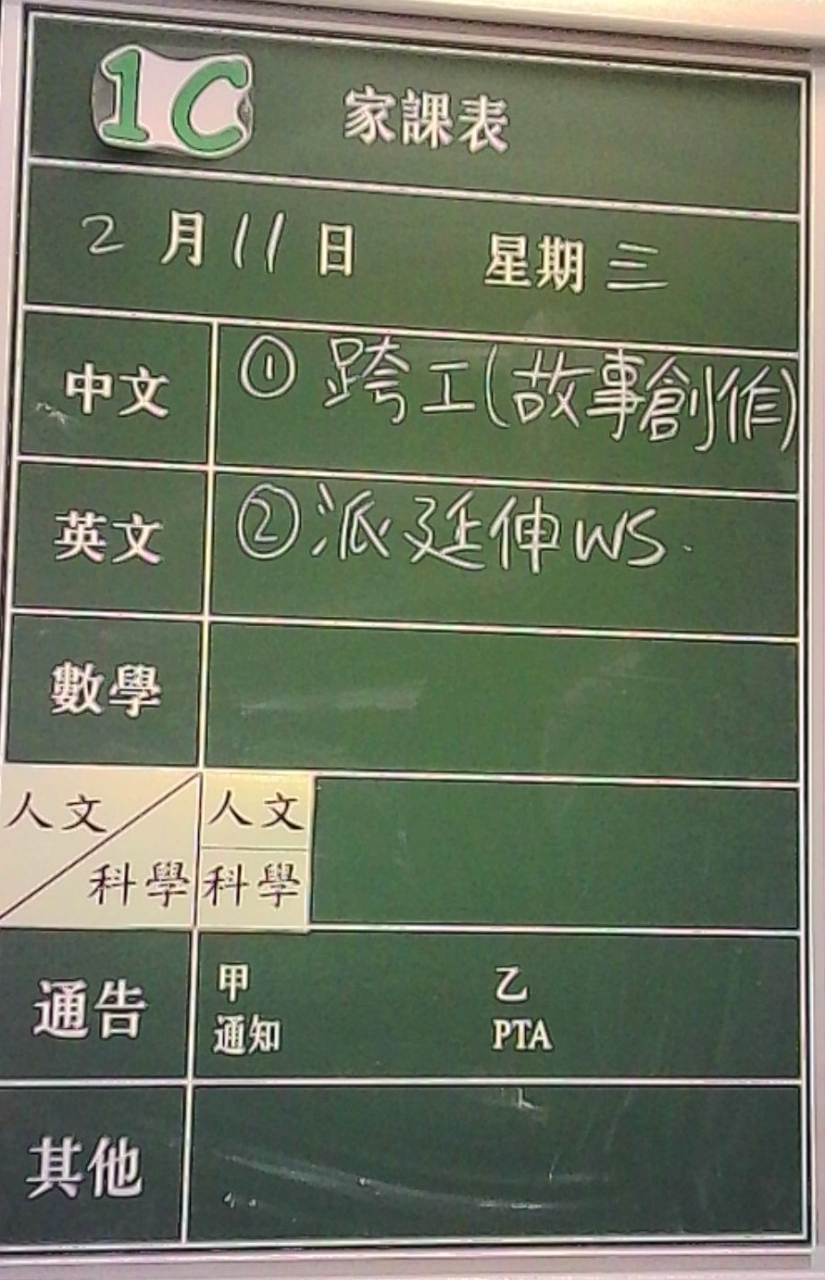 1C 家課表
2月11日 星期三
中文 ① 跨工(故事創作)
英文 ②派延伸WS.
數學
人文/科學 人文
科學
通告 甲 乙
通知 PTA
其他